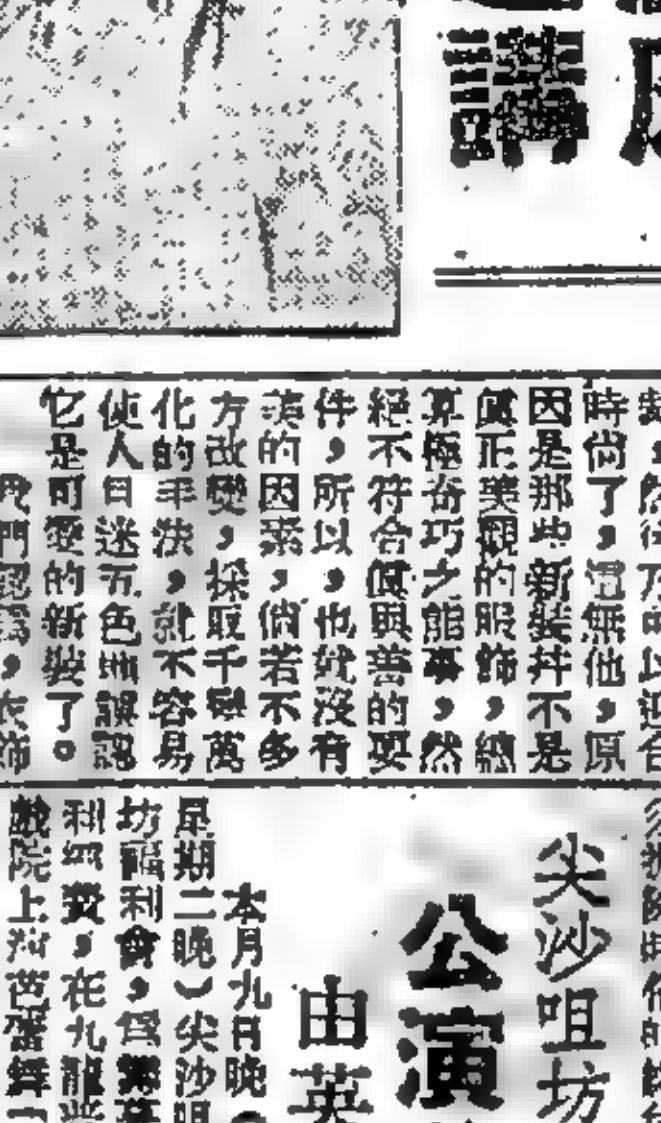 講
時尚了，這無他，原
因是那些新裝并不是
眞正美觀的服飾，總
算極奇巧之能事，然
絕不符合眞與善的要
件，所以，也就沒有
美的因素，倘若不多
方改變，採取千變萬
化的手法，就不容易
使人目迷五色而誤認
它是可愛的新裝了。
我們認爲，衣飾
尖沙咀坊
公演
由英
本月九日晚（
星期二晚）尖沙咀
坊福利會，爲籌募
利經費，在九龍
戲院上演芭蕾舞